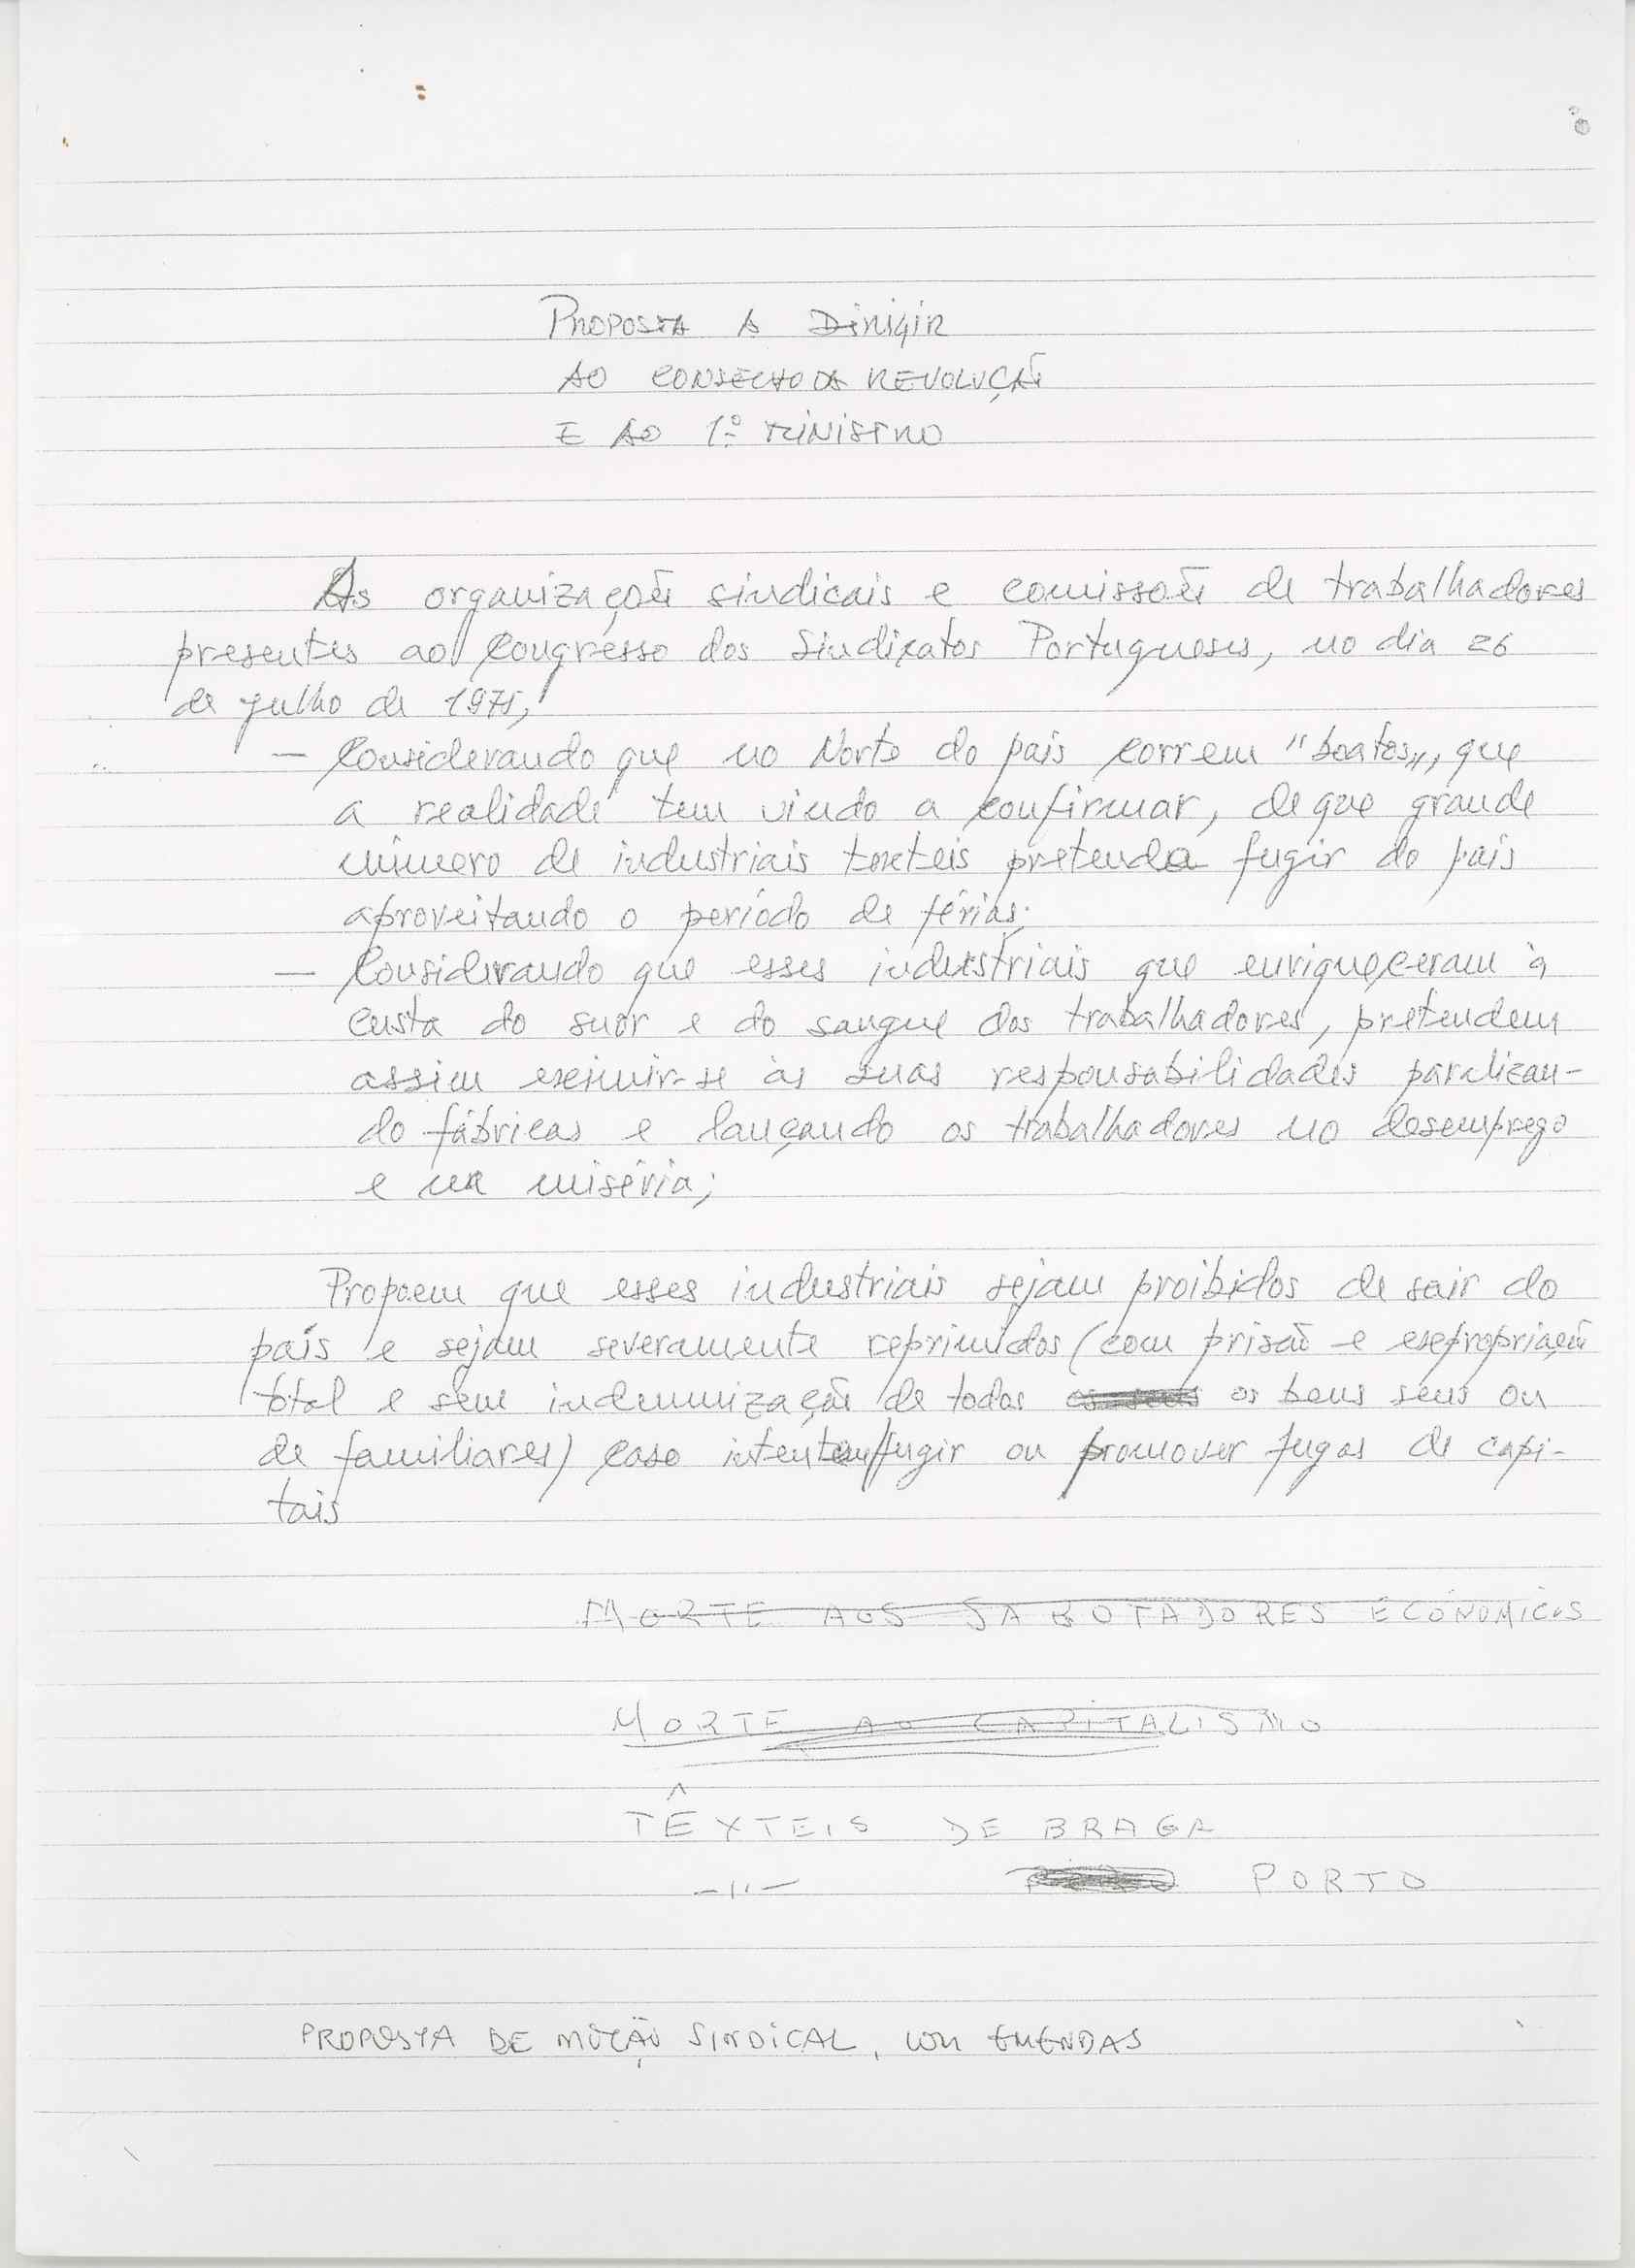 PROPOSTA A DIRIGIR
AO CONSELHO DA REVOLUÇÃO
E AO 1º MINISTRO
As organizações sindicais e comissões de trabalhadores
presentes ao Congresso dos Sindicatos Portugueses, no dia 26
de julho de 1975,
— Considerando que no Norte do país correm "boatos", que
a realidade tem vindo a confirmar, de que grande
número de industriais texteis pretenda fugir do país
aproveitando o período de férias;
— Considerando que esses industriais que enriqueceram à
custa do suor e do sangue dos trabalhadores, pretendem
assim eximir-se às suas responsabilidades paralizan-
do fábricas e lançando os trabalhadores no desemprego
e na miséria;
Propoem que esses industriais sejam proibidos de sair do
país e sejam severamente reprimidos (com prisão e expropriação
total e sem indemnização de todos os seus os bens seus ou
de familiares) caso intentem fugir ou promover fugas de capi-
tais
MORTE AOS SABOTADORES ECONOMICOS
MORTE AO CAPITALISMO
TÊXTEIS DE BRAGA
—"— PORTO
PROPOSTA DE MOÇÃO SINDICAL, COM EMENDAS